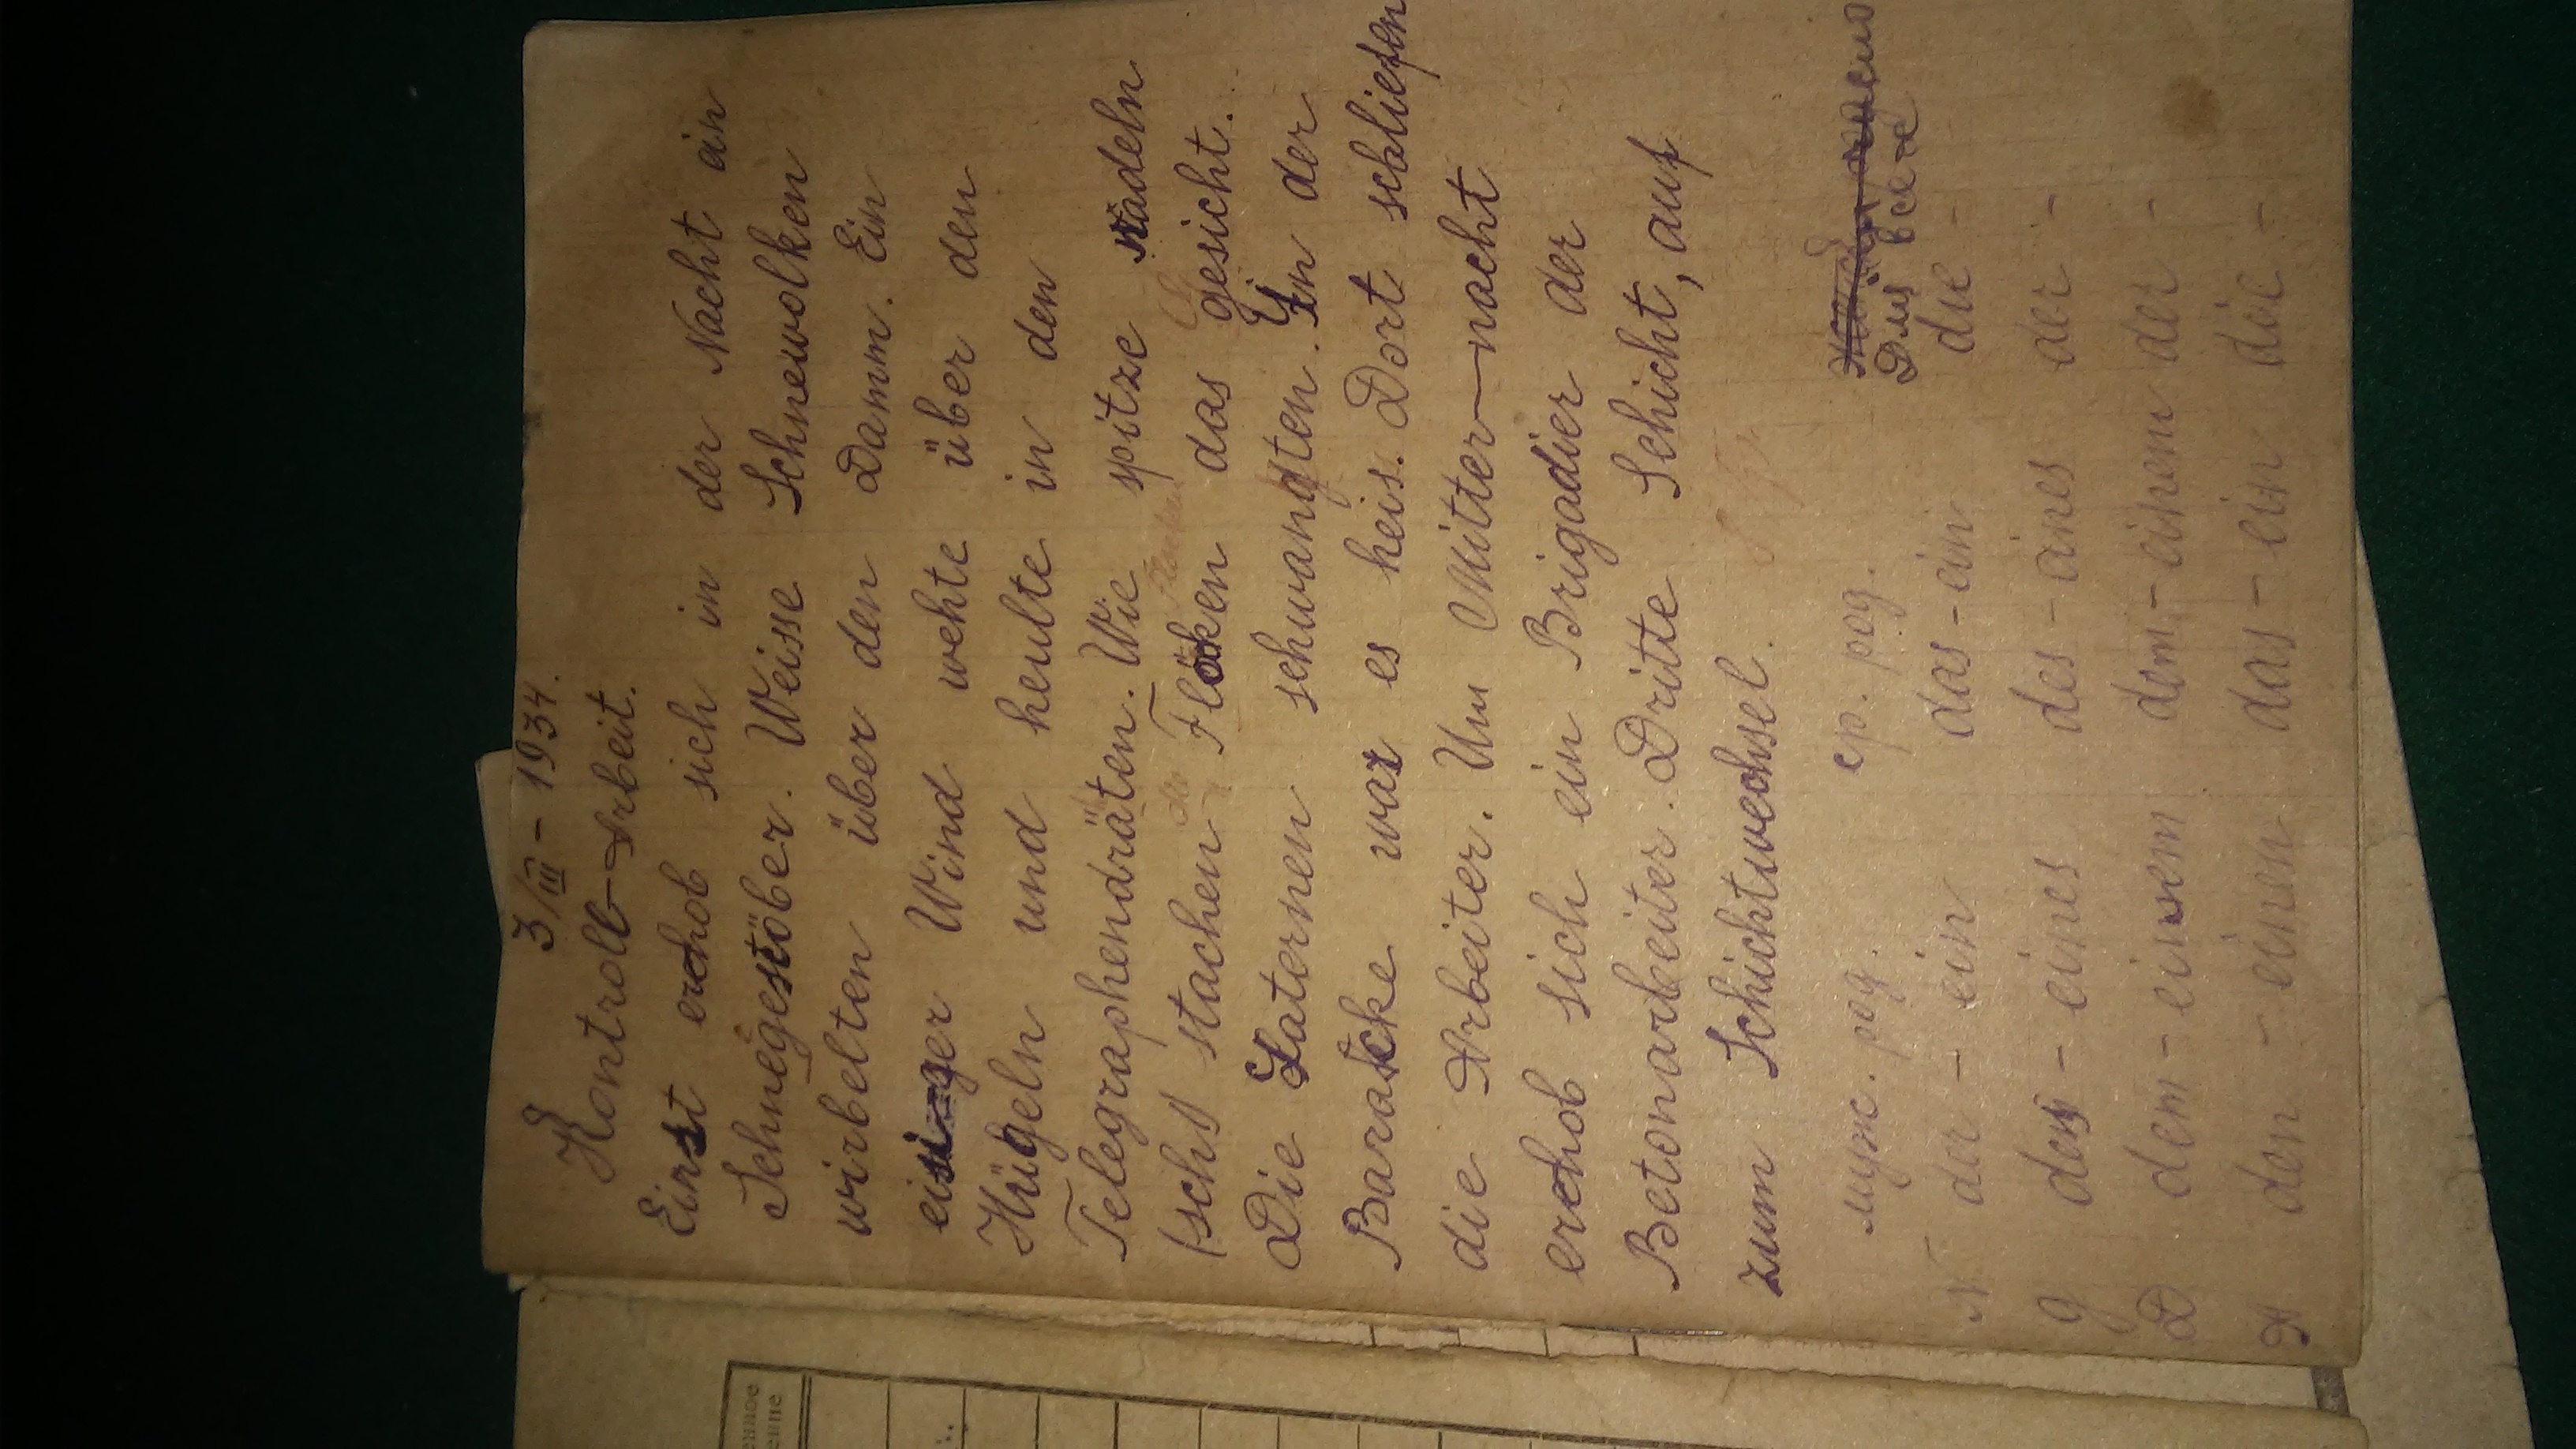 3/III - 1934.
Kontroll-Arbeit.
Einst erhob sich in der Nacht ein
Schnegestöber. Weisse Schnewolken
wirbelten über den Damm. Ein
eisiger Wind wehte über den
Hügeln und heulte in den
Telegraphendräten. Wie spitze Nädeln
stachen Flocken das gesicht.
Die Laternen schwangten. In der
Baracke war es heis. Dort schliefen
die Arbeiter. Um Mitter-nacht
erhob sich ein Brigadier der
Betonarbeiter. Dritte Schicht, auf
zum Schichtwechsel.
муж. род. ср. род. Для всех
N der - ein das - ein die -
G des - eines des - eines der -
D dem - einem dem - einem der -
A den - einen das - ein die -
енное
ение